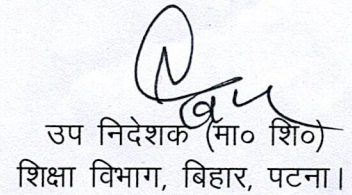 उप निदेशक (मा० शि०)
शिक्षा विभाग, बिहार, पटना।